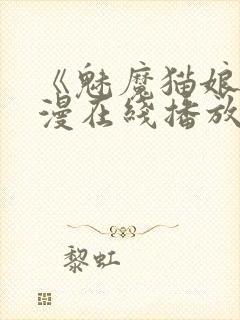 《魅魔猫娘
漫在线播放
黎虹